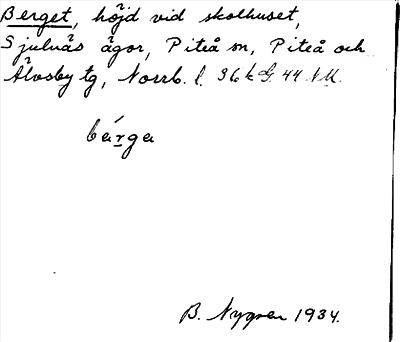 Berget, höjd vid skolhuset,
Sjulnäs ägor, Piteå sn, Piteå och
Älvsby tg, Norrb. l. 36 k G. 44
bárga
B. Nygren 1934.